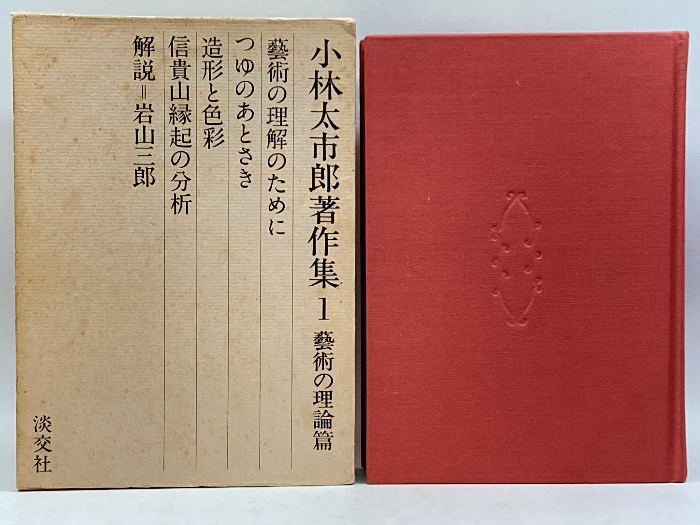 小林太市郎著作集1 藝術の理論篇
藝術の理解のために
つゆのあとさき
造形と色彩
信貴山縁起の分析
解説=岩山三郎
淡交社